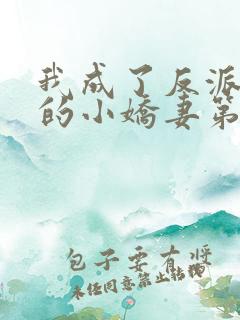 我成了反派
的小娇妻第
包子要有酱
未任同意禁止转载